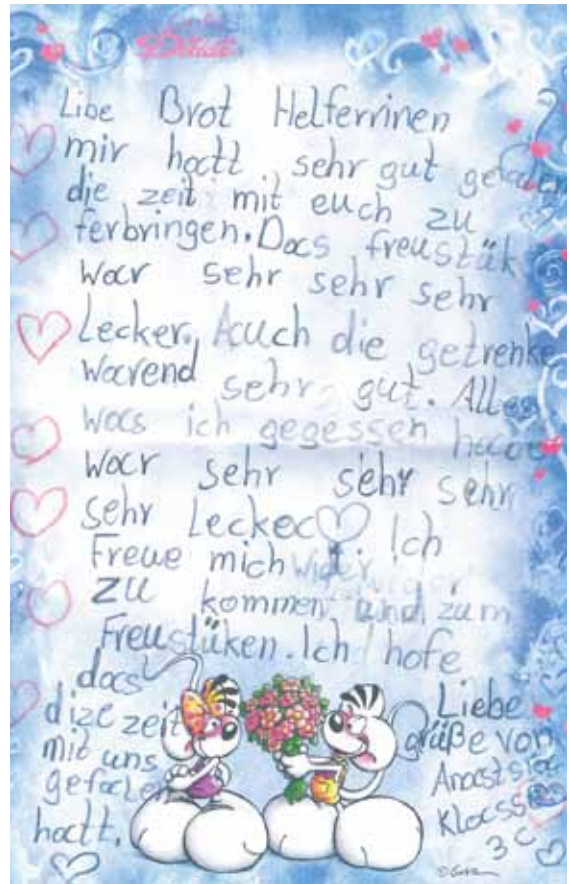 Diddl
Libe Brot Helferrinen
mir hatt sehr gut gefalen
die zeit mit euch zu
ferbringen. Das freustük
war sehr sehr sehr
Lecker, Auch die getrenke
warend sehr gut. Alles
was ich gegessen habe
war sehr sehr sehr
sehr Lecker Ich
Freue mich wider
zu kommen und zum
Freustüken. Ich hofe
das
dize zeit
mit uns
gefalen
hatt.
Liebe
grüße von
Anastsia
Klasse
3c